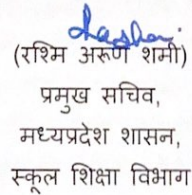 (रश्मि अरूण शमी)
प्रमुख सचिव,
मध्यप्रदेश शासन,
स्कूल शिक्षा विभाग